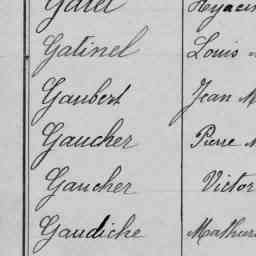 Gatinel Louis
Gaubert Jean M
Gaucher Pierre
Gaucher Victor
Gaudiche Mathuri